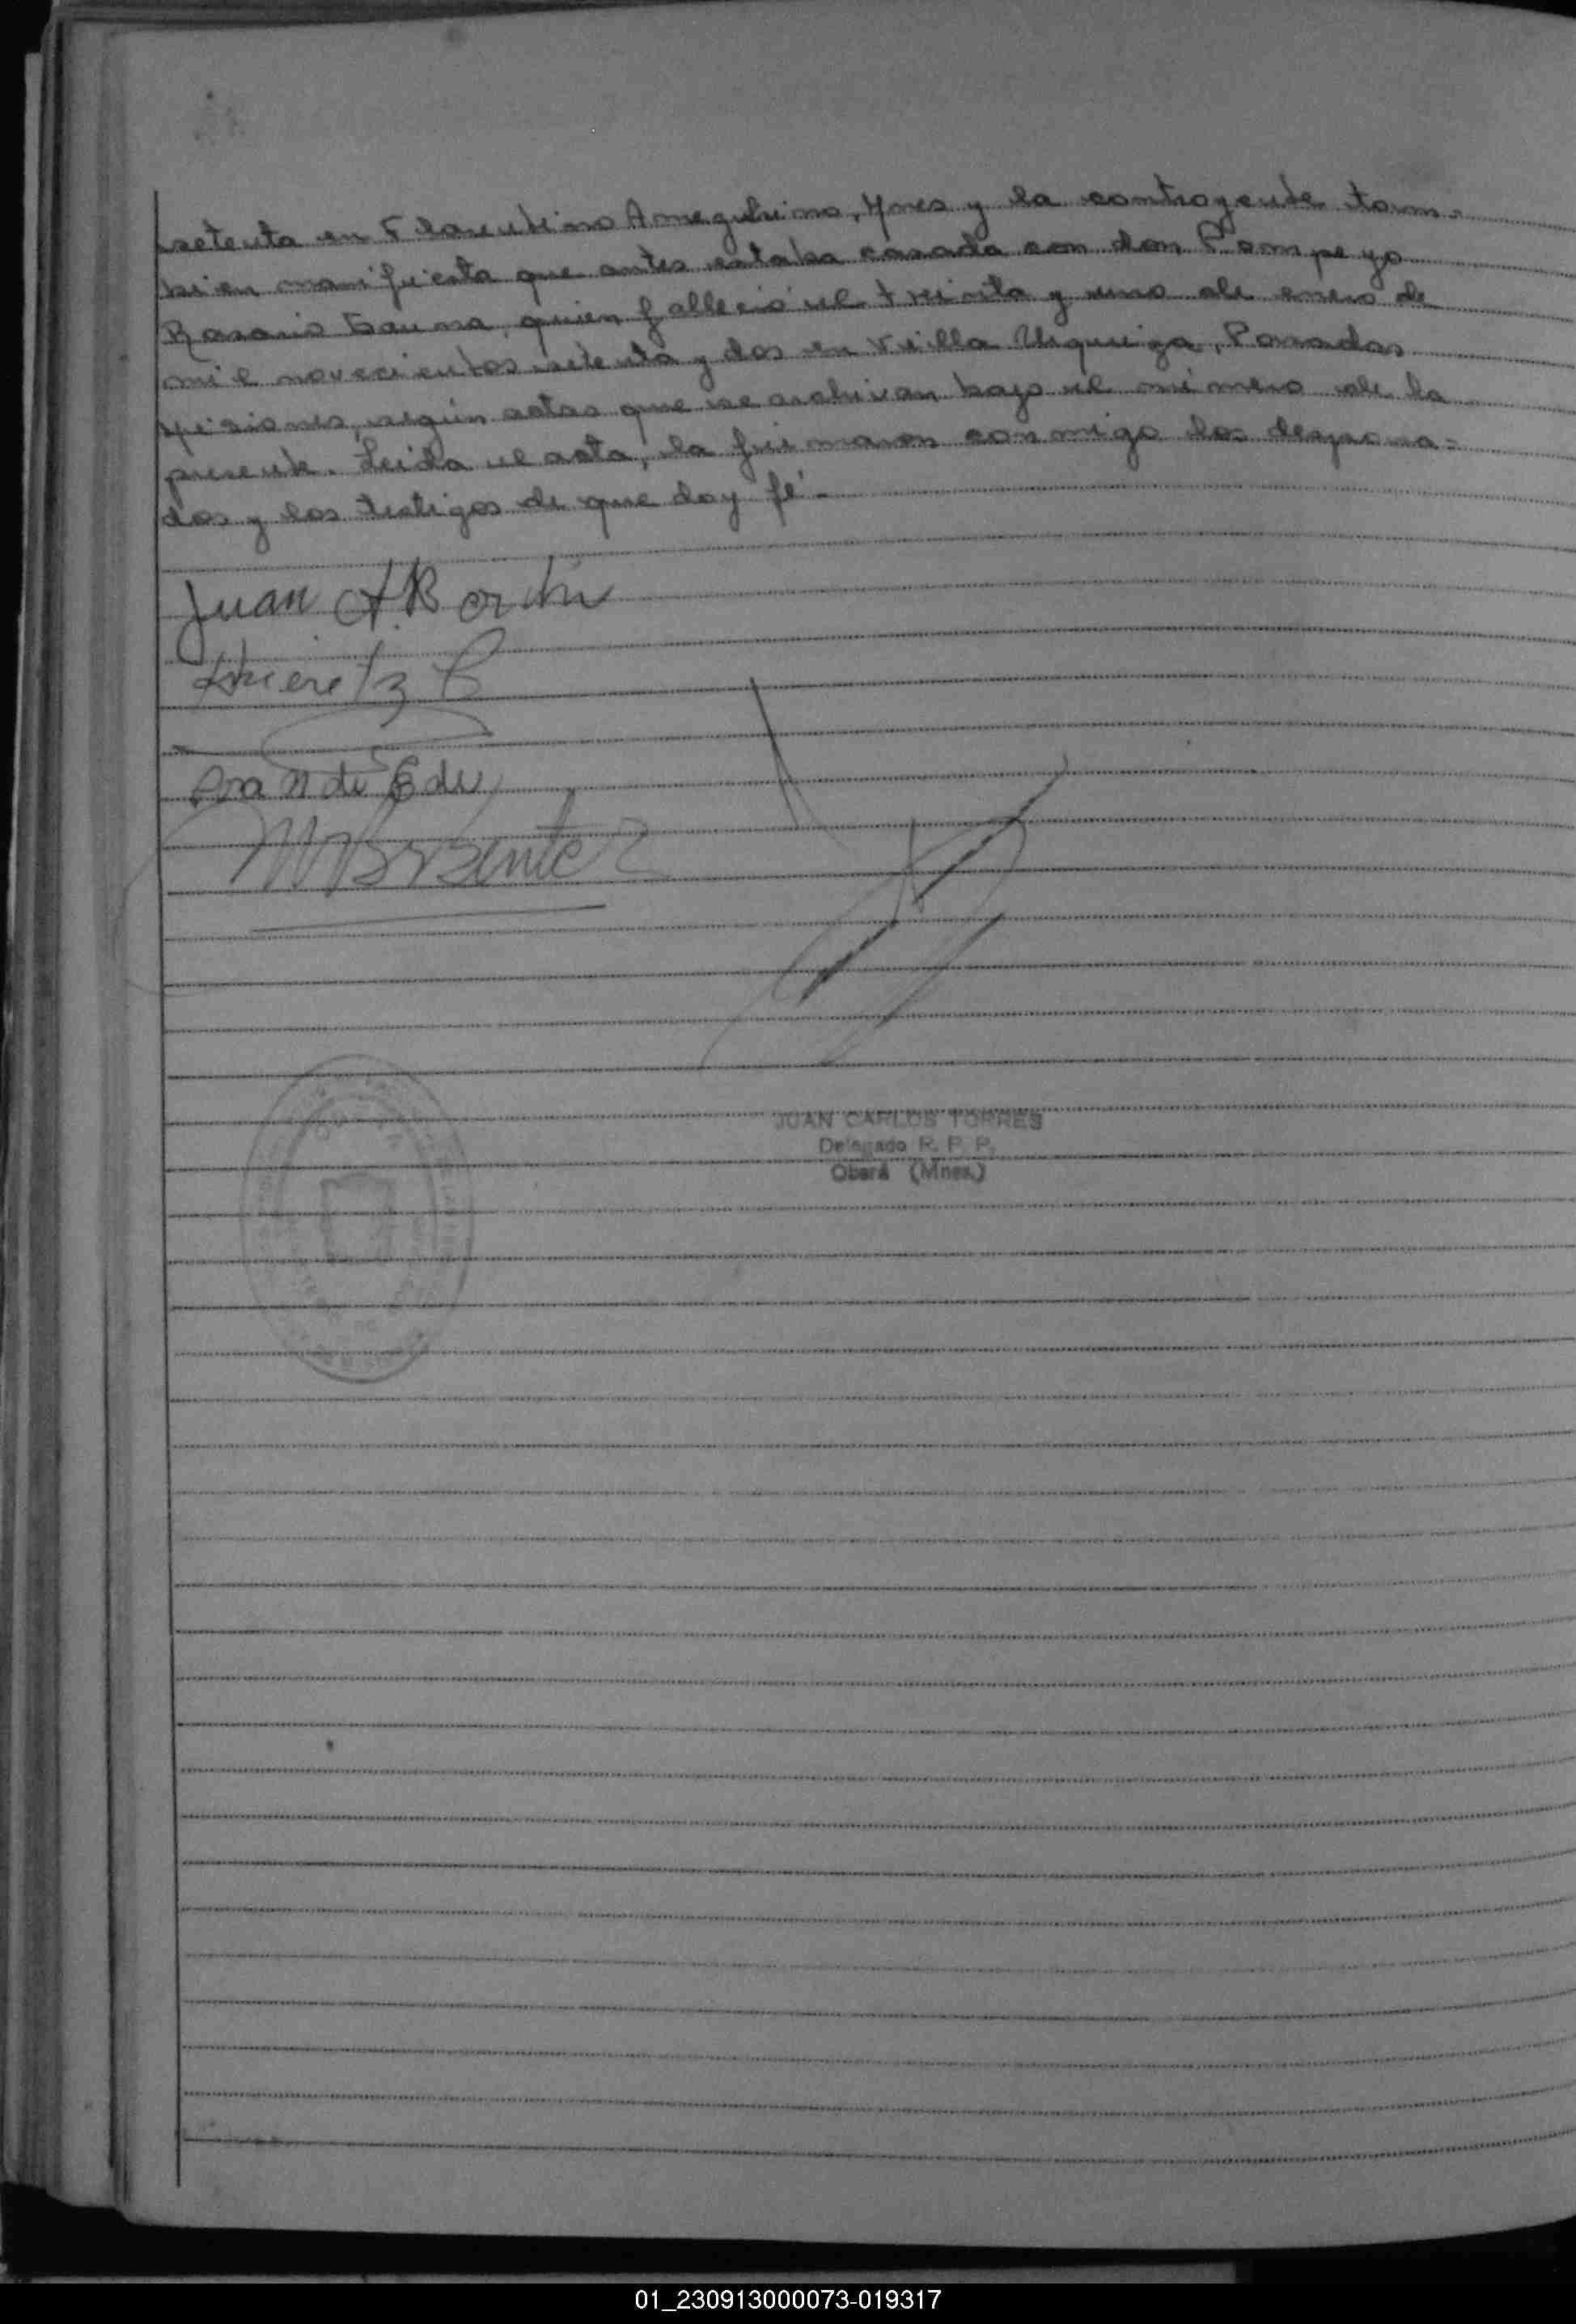 setenta en Florentino Ameghino, Mnes y la contrayente tam=
bien manifiesta que antes estaba casada con don Pompeyo
Rosario Gauna, quien falleció el treinta y uno de enero de
mil novecientos setenta y dos en Villa Urquiza, Posadas
Misiones, según actas que se archivan bajo el número de la
presente. Leida el acta, la firmaron conmigo los desposa=
dos y los testigos de que doy fé.-
Juan A.
JUAN CARLOS TORRES
Delegado R. P. P.
Oberá (Mnes.)
01_230913000073-019317